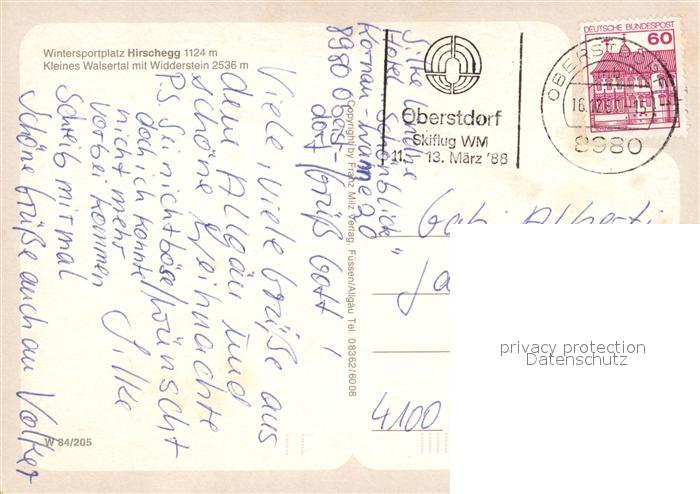 Wintersportplatz Hirschegg 1124 m
Kleines Walsertal mit Widderstein 2536 m
Silke
Hotel "Schönblick"
Kornau-Wanne 20
8980 Oberst-
dorf / Grüß Gott!
Viele, viele Grüße aus
dem Allgäu und
schöne Weihnachte
wünscht
Silke
P.S. Sei nicht böse,
doch ich konnte
nicht mehr
vorbei kommen
Schreib mir mal
Schöne Grüße auch an Volker
W 84/205
Copyright by Franz Milz Verlag, Füssen/Allgäu Tel. 08362/6008
Oberstdorf
Skiflug WM
11. - 13. März '88
DEUTSCHE BUNDESPOST
60
OBERST
8980
Gabi Alberti
4100
privacy protection
Datenschutz